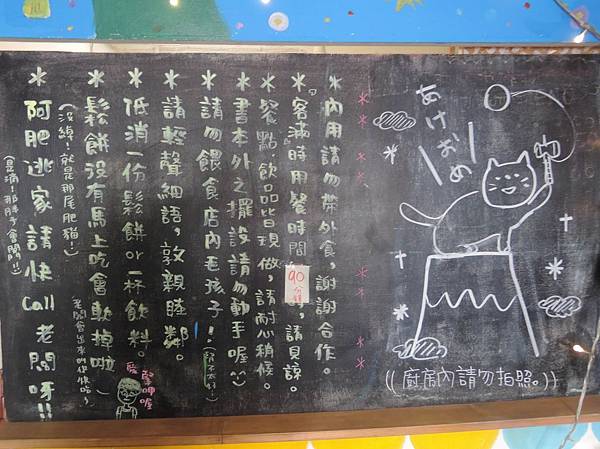 あけおめ
((廚房內請勿拍照。))
＊內用請勿帶外食，謝謝合作。
＊客滿時用餐時間90分鐘，請見諒。
＊餐點.飲品皆現做，請耐心稍候。
＊書本外之擺設請勿動手喔^^
＊請勿餵食店內毛孩子！
＊請輕聲細語，敦親睦鄰。
＊低消一份鬆餅or一杯飲料。
＊鬆餅沒有馬上吃會軟掉啦
(沒綽！就是那尾肥貓！)
＊阿肥逃家請快Call老闆呀!!